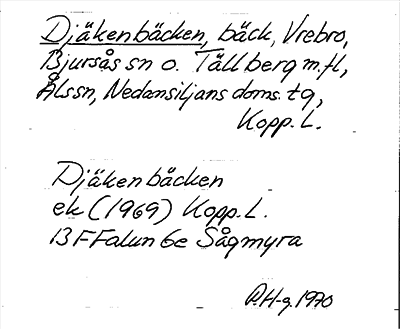 Djäkenbäcken, bäck, Vrebro,
Bjursås sn o. Tällberg m.fl,
Ålssn, Nedansiljans doms. tg,
Kopp. L.
Djäkenbäcken
ek (1969) Kopp. L.
13 F Falun 6e Sågmyra
P.H-g. 1970